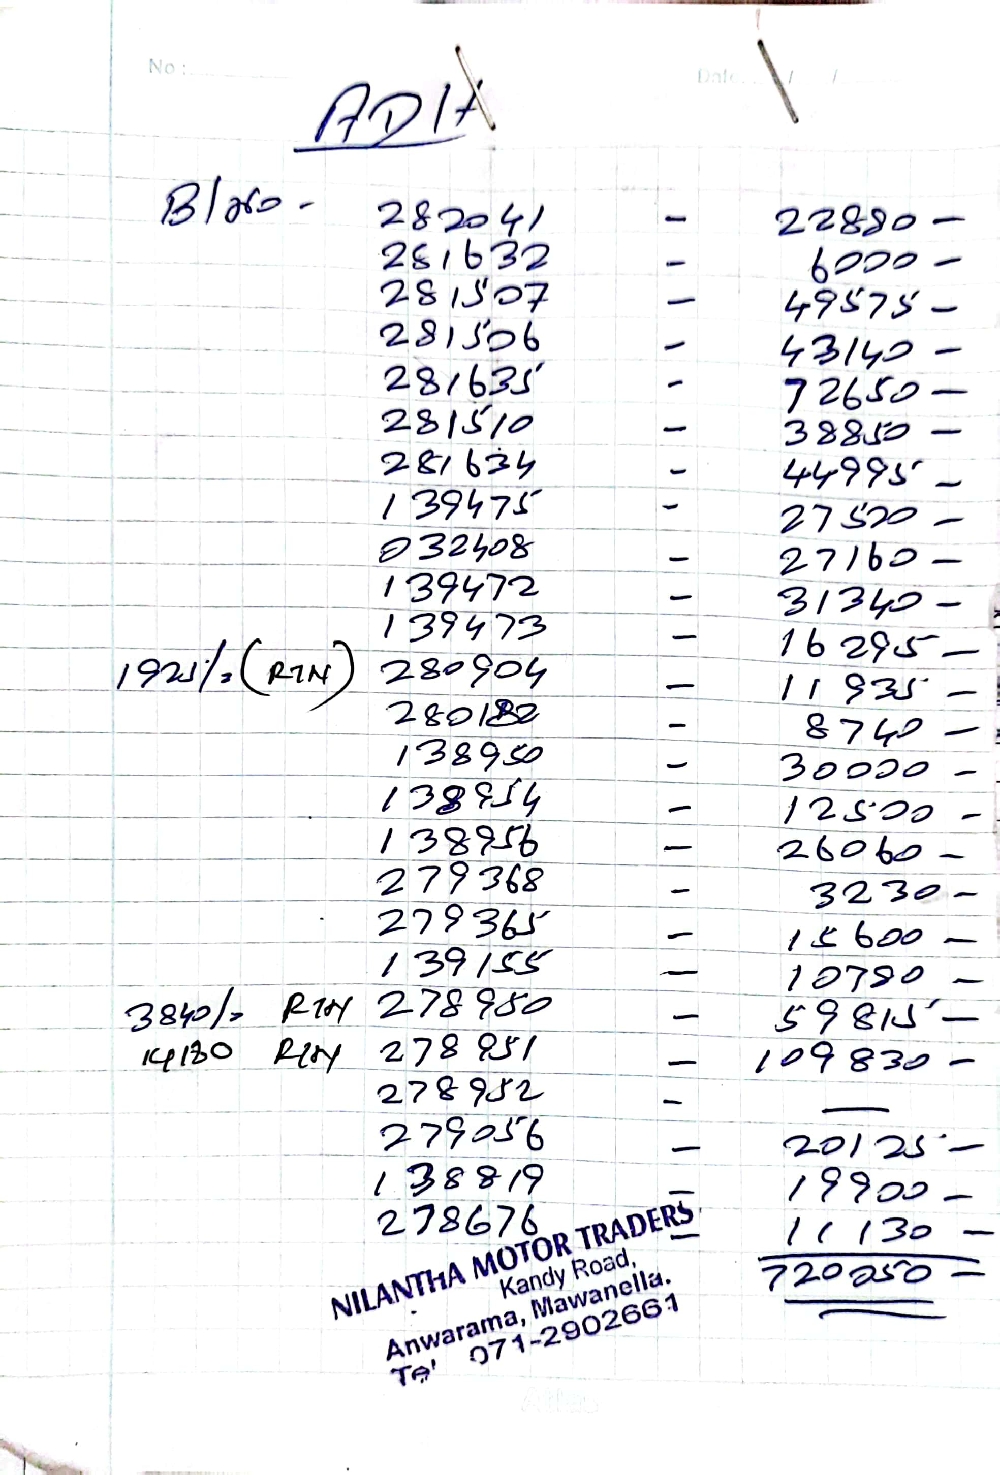 No :
Date: / /
ADIA
B/no - 282041 - 22880 -
281632 - 6000 -
281507 - 49575 -
281506 - 43140 -
281635 - 72650 -
281510 - 38850 -
281634 - 44995 -
139475 - 27520 -
032408 - 27160 -
139472 - 31340 -
139473 - 16295 -
1925/= (RTN) 280904 - 11935 -
280182 - 8740 -
138950 - 30000 -
138954 - 12500 -
138956 - 26060 -
279368 - 3230 -
279365 - 15600 -
139155 - 10780 -
3840/= RTN 278950 - 59815 -
14130 RTN 278951 - 109830 -
278952 - —
279056 - 20125 -
138819 - 19900 -
278676 - 11130 -
720050 =
NILANTHA MOTOR TRADERS
Kandy Road,
Anwarama, Mawanella.
Tel 071-2902661